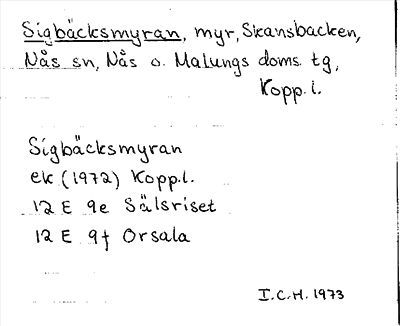 Sigbäcksmyran, myr, Skansbacken,
Nås sn, Nås o. Malungs doms. tg,
Kopp. l.
Sigbäcksmyran
ek (1972) Kopp.l.
12 E 9e Sälsriset
12 E 9f Orsala
I.C.H. 1973